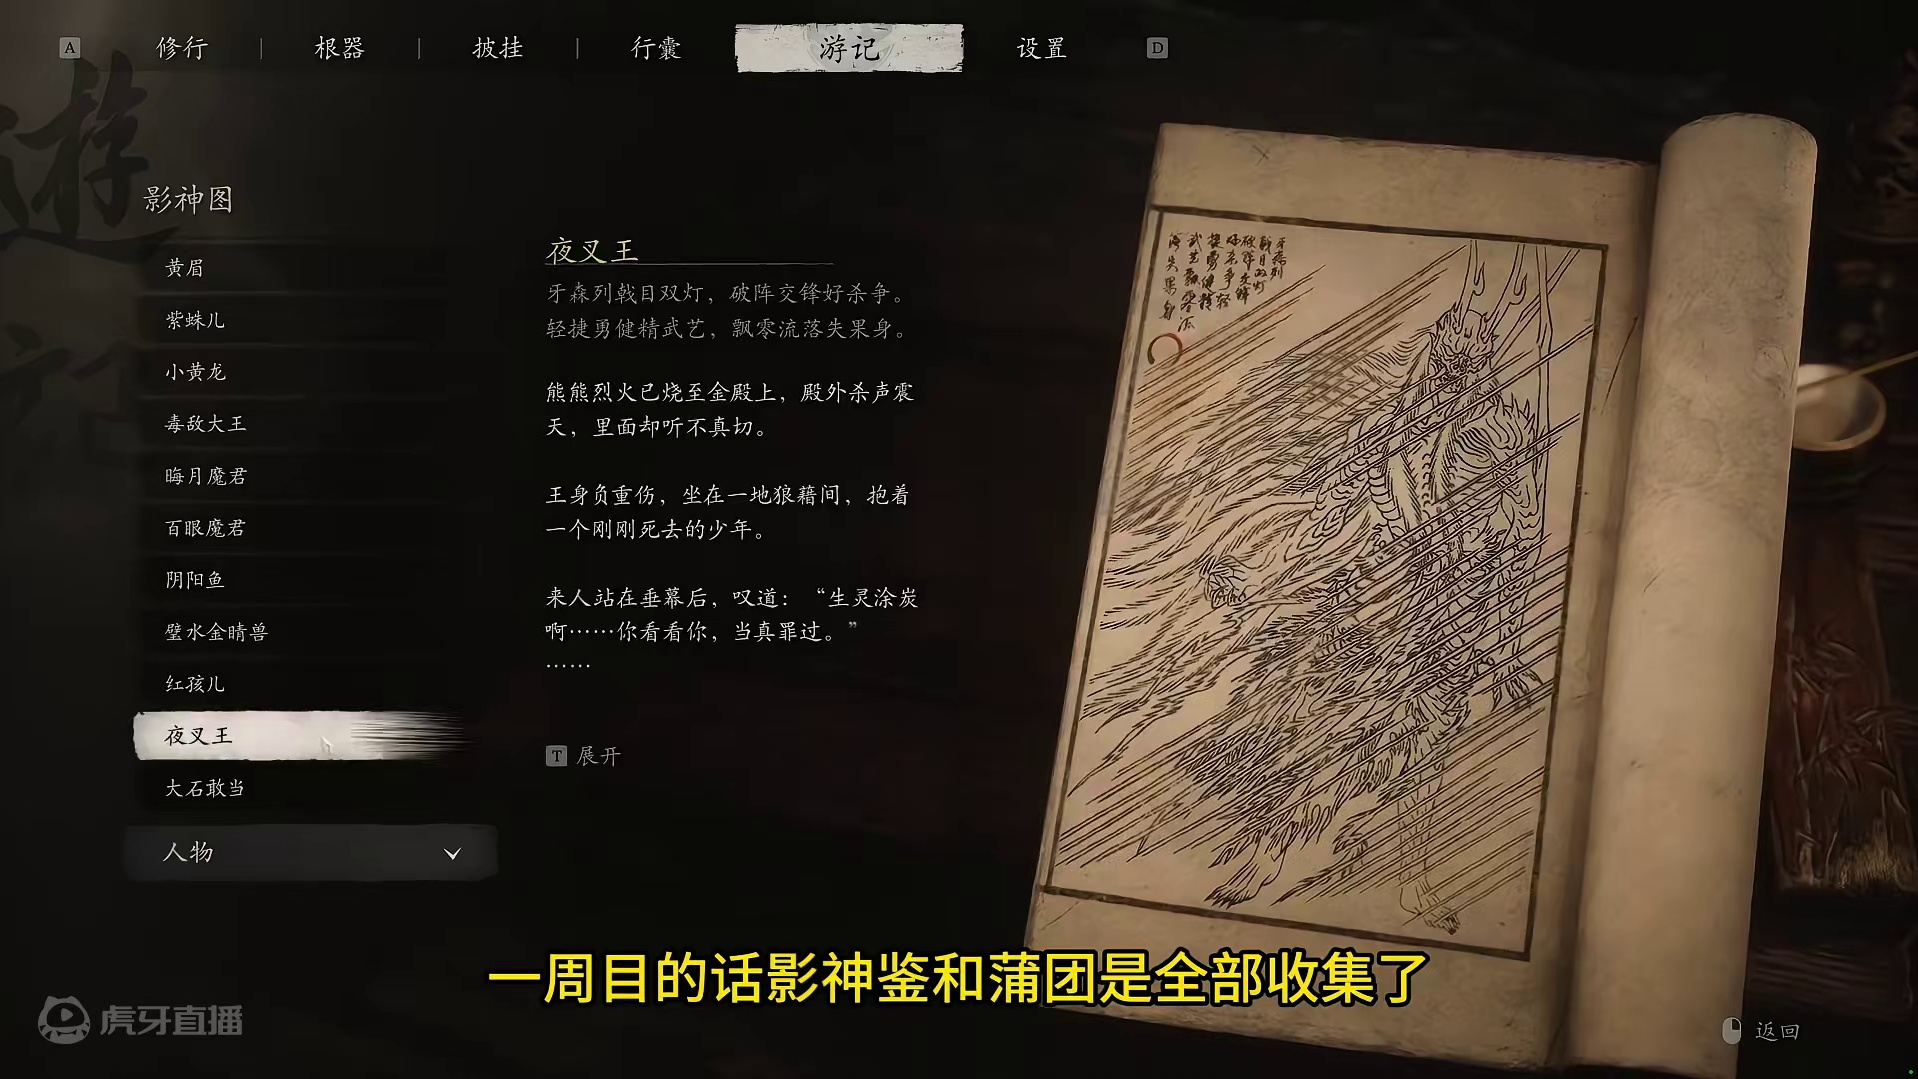 A
修行
根器
披挂
行囊
游记
设置
D
影神图
黄眉
紫蛛儿
小黄龙
毒敌大王
晦月魔君
百眼魔君
阴阳鱼
璧水金睛兽
红孩儿
夜叉王
大石敢当
人物
夜叉王
牙森列戟目双灯，破阵交锋好杀争。
轻捷勇健精武艺，飘零流落失果身。
熊熊烈火已烧至金殿上，殿外杀声震
天，里面却听不真切。
王身负重伤，坐在一地狼藉间，抱着
一个刚刚死去的少年。
来人站在垂幕后，叹道：“生灵涂炭
啊……你看看你，当真罪过。”
……
T 展开
牙森列
戟目双灯
破阵交锋
好杀争轻
捷勇健精
武艺飘零流
落失果身
一周目的话影神鉴和蒲团是全部收集了
虎牙直播
返回